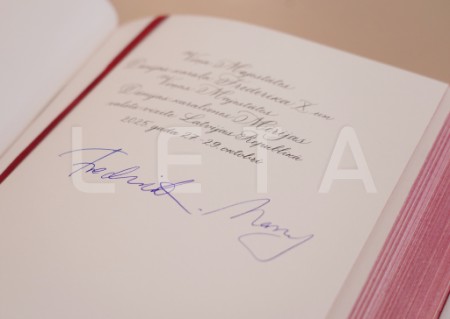 Viņa Majestātes
Dānijas karaļa Frederika X un
Viņas Majestātes
Dānijas karalienes Marijas
valsts vizīte Latvijas Republikā
2025. gada 28.-29. oktobrī
LETA
Frederik Mary